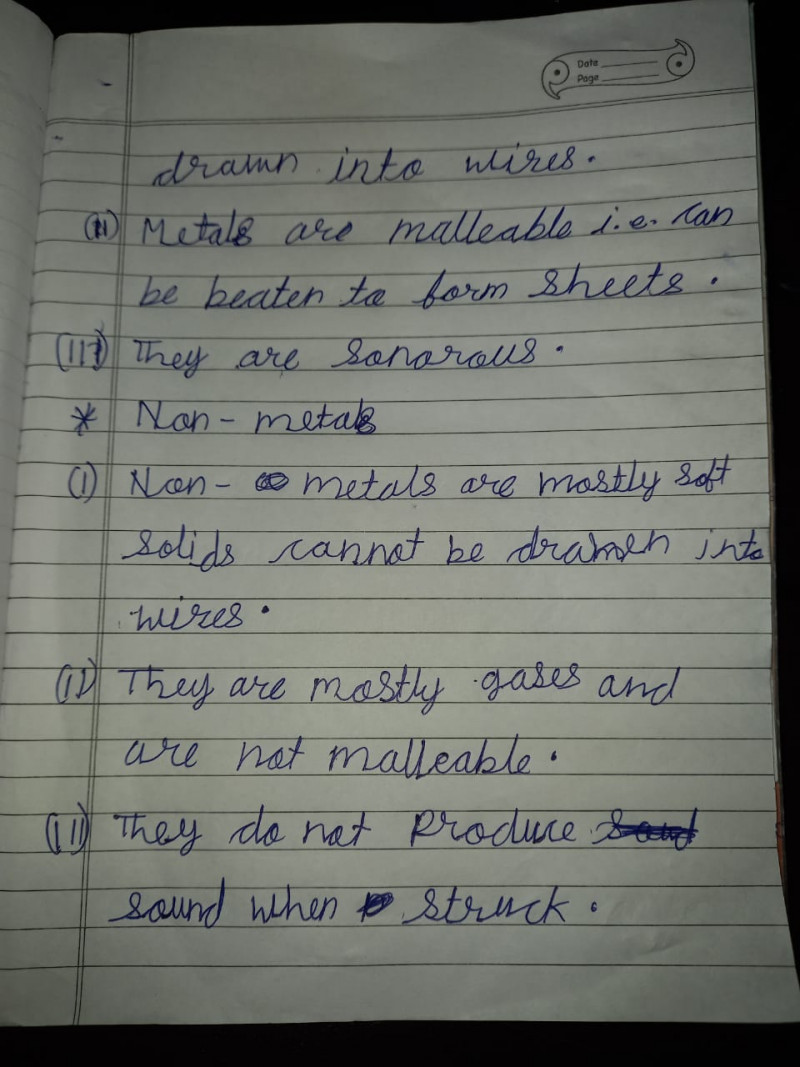 Date
Page
drawn into wires.
(ii) Metals are malleable i.e. can
be beaten to form sheets.
(iii) They are sonorous.
* Non-metals
(i) Non- metals are mostly soft
solids cannot be drawen into
wires.
(ii) They are mostly gases and
are not malleable.
(iii) They do not produce
sound when struck.